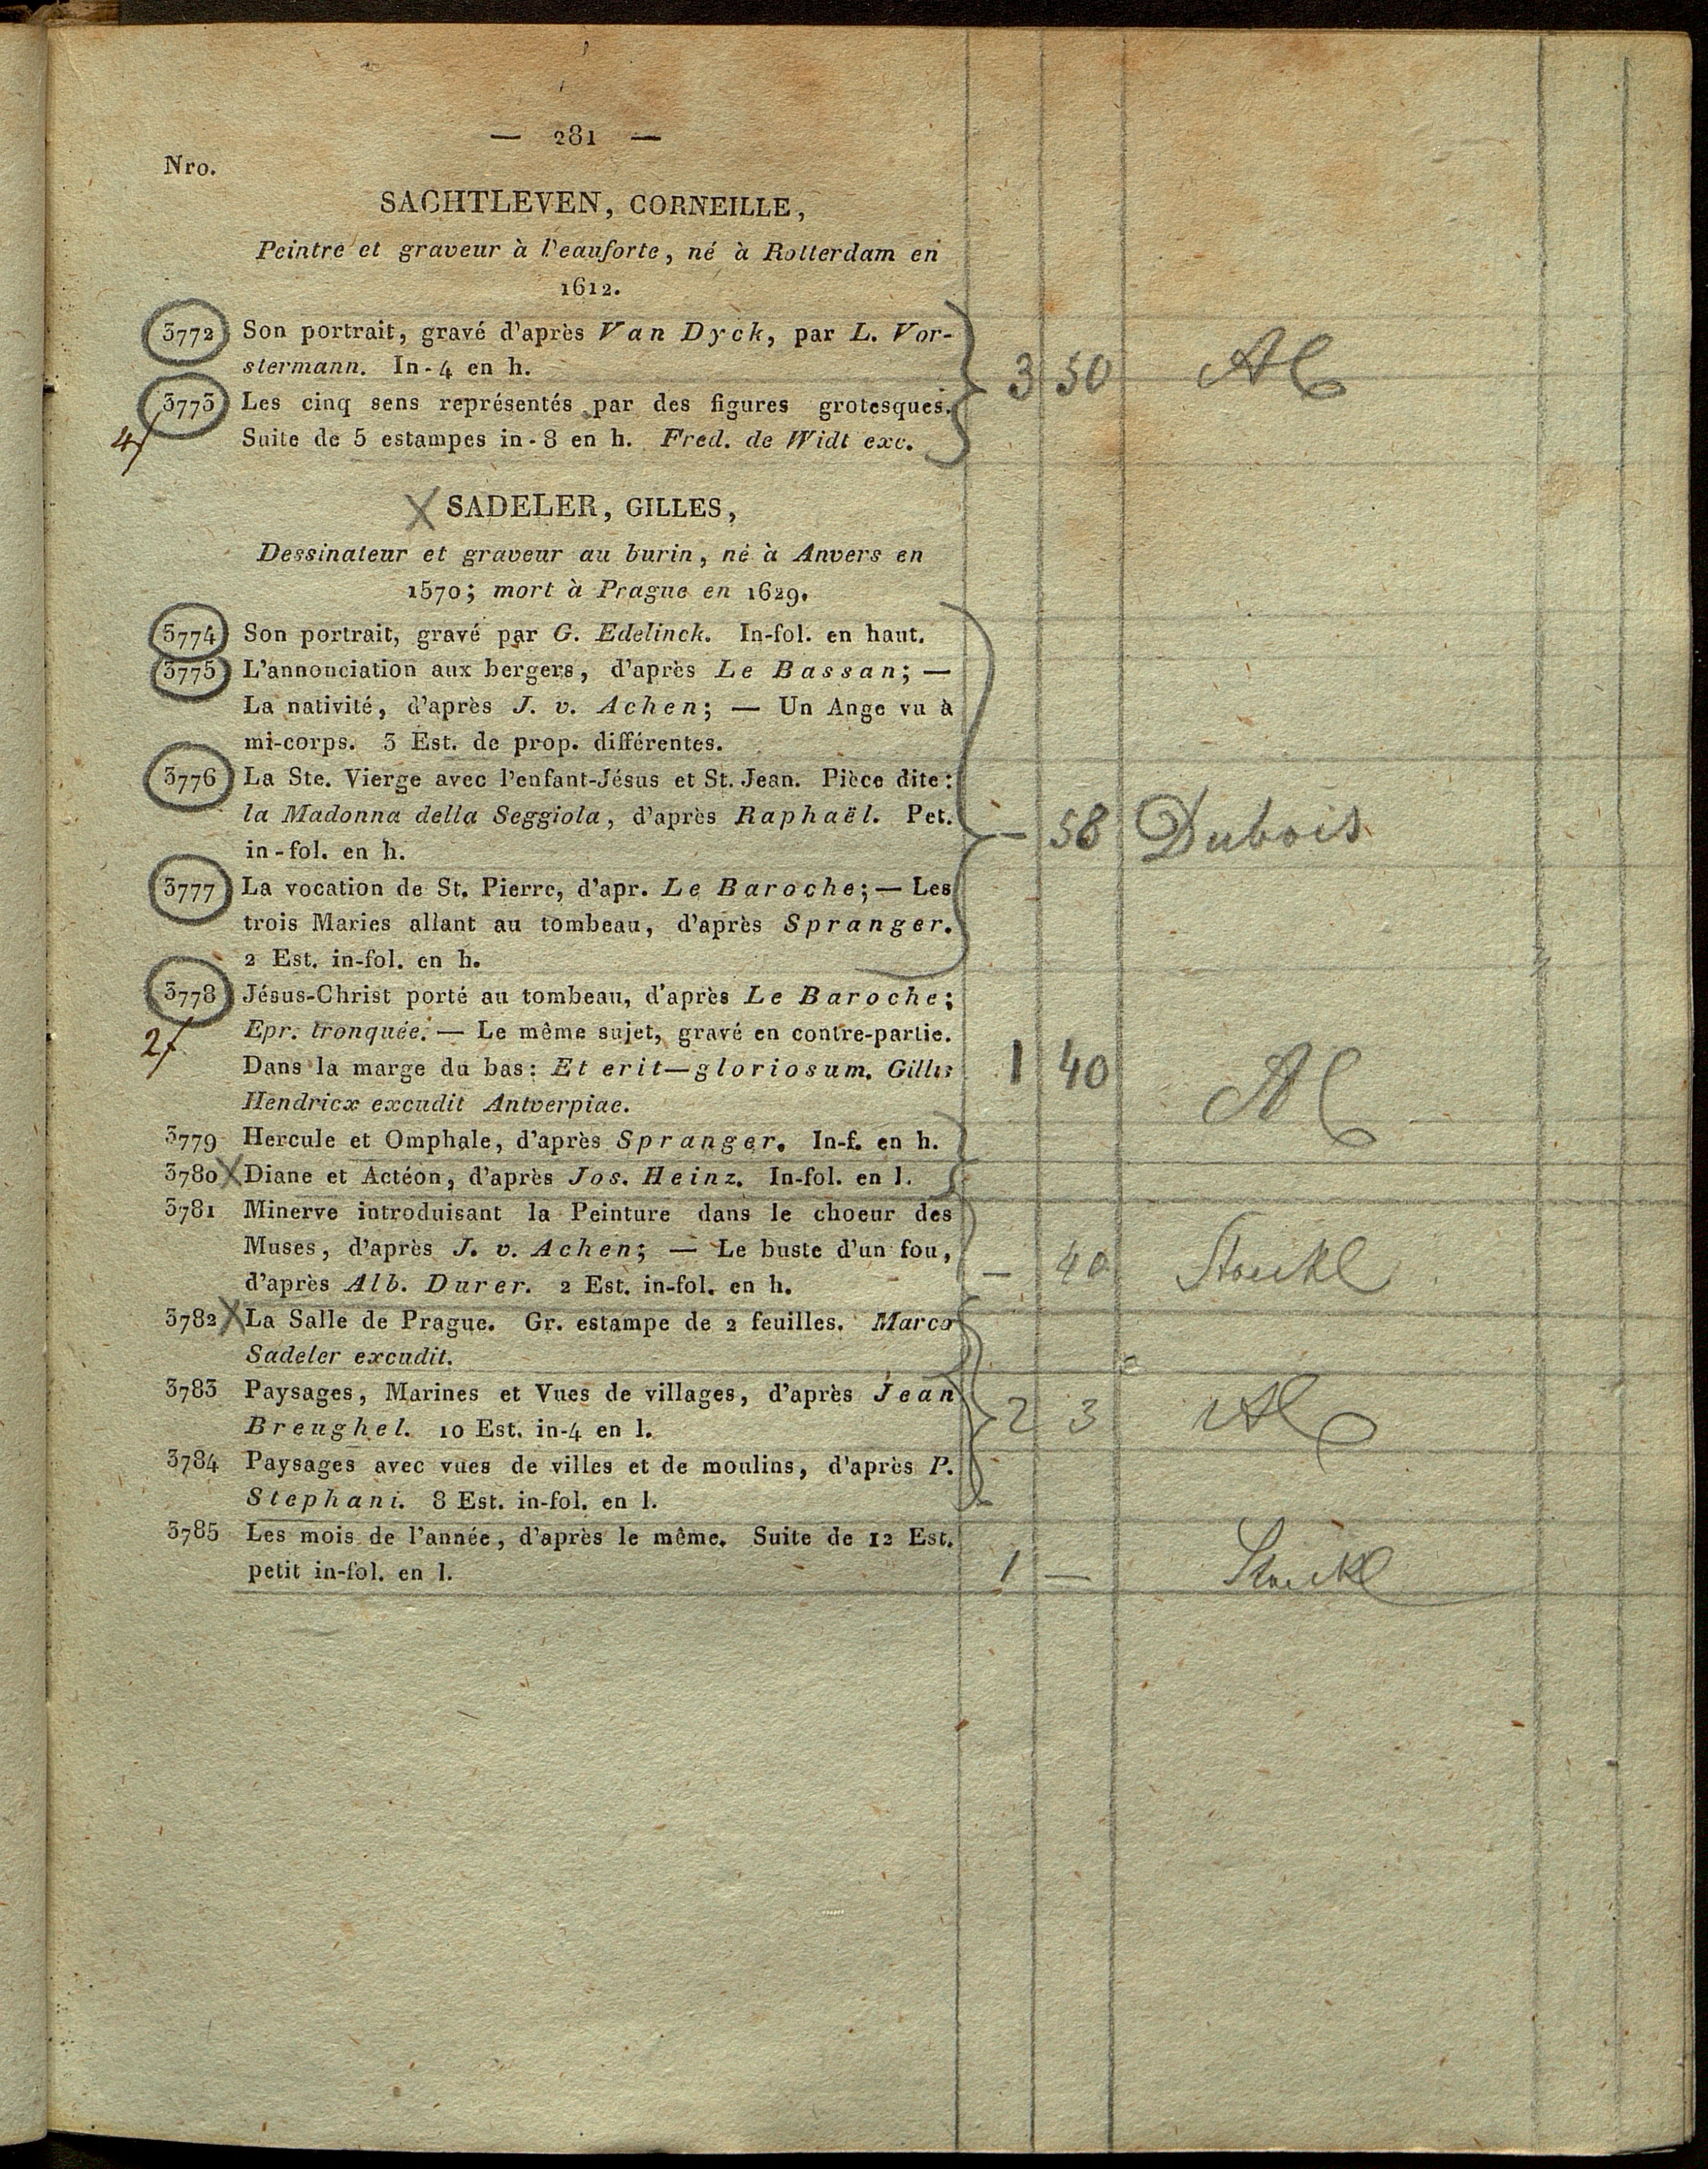 — 281 —
Nro.
SACHTLEVEN, CORNEILLE,
Peintre et graveur à l'eauforte, né à Rotterdam en
1612.
3772 Son portrait, gravé d'après Van Dyck, par L. Vor-
stermann. In-4 en h.
3 50 Al
3773 Les cinq sens représentés par des figures grotesques.
4/ Suite de 5 estampes in-8 en h. Fred. de Widt exc.
X SADELER, GILLES,
Dessinateur et graveur au burin, né à Anvers en
1570; mort à Prague en 1629.
3774 Son portrait, gravé par G. Edelinck. In-fol. en haut.
3775 L'annonciation aux bergers, d'après Le Bassan; —
La nativité, d'après J. v. Achen; — Un Ange vu à
mi-corps. 3 Est. de prop. différentes.
3776 La Ste. Vierge avec l'enfant-Jésus et St. Jean. Pièce dite:
la Madonna della Seggiola, d'après Raphaël. Pet.
— 58 Dubois
in-fol. en h.
3777 La vocation de St. Pierre, d'apr. Le Baroche; — Les
trois Maries allant au tombeau, d'après Spranger.
2 Est. in-fol. en h.
3778 Jésus-Christ porté au tombeau, d'après Le Baroche;
2/ Epr. tronquée. — Le même sujet, gravé en contre-partie.
Dans la marge du bas: Et erit—gloriosum. Gillis
1 40 Al
Hendricx excudit Antverpiae.
3779 Hercule et Omphale, d'après Spranger. In-f. en h.
3780 X Diane et Actéon, d'après Jos. Heinz. In-fol. en l.
3781 Minerve introduisant la Peinture dans le choeur des
Muses, d'après J. v. Achen; — Le buste d'un fou,
— 40 Stoeckl
d'après Alb. Durer. 2 Est. in-fol. en h.
3782 X La Salle de Prague. Gr. estampe de 2 feuilles. Marco
Sadeler excudit.
3783 Paysages, Marines et Vues de villages, d'après Jean
2 3 Al
Breughel. 10 Est. in-4 en l.
3784 Paysages avec vues de villes et de moulins, d'après P.
Stephani. 8 Est. in-fol. en l.
3785 Les mois de l'année, d'après le même. Suite de 12 Est.
petit in-fol. en l.
1 — Stoeckl